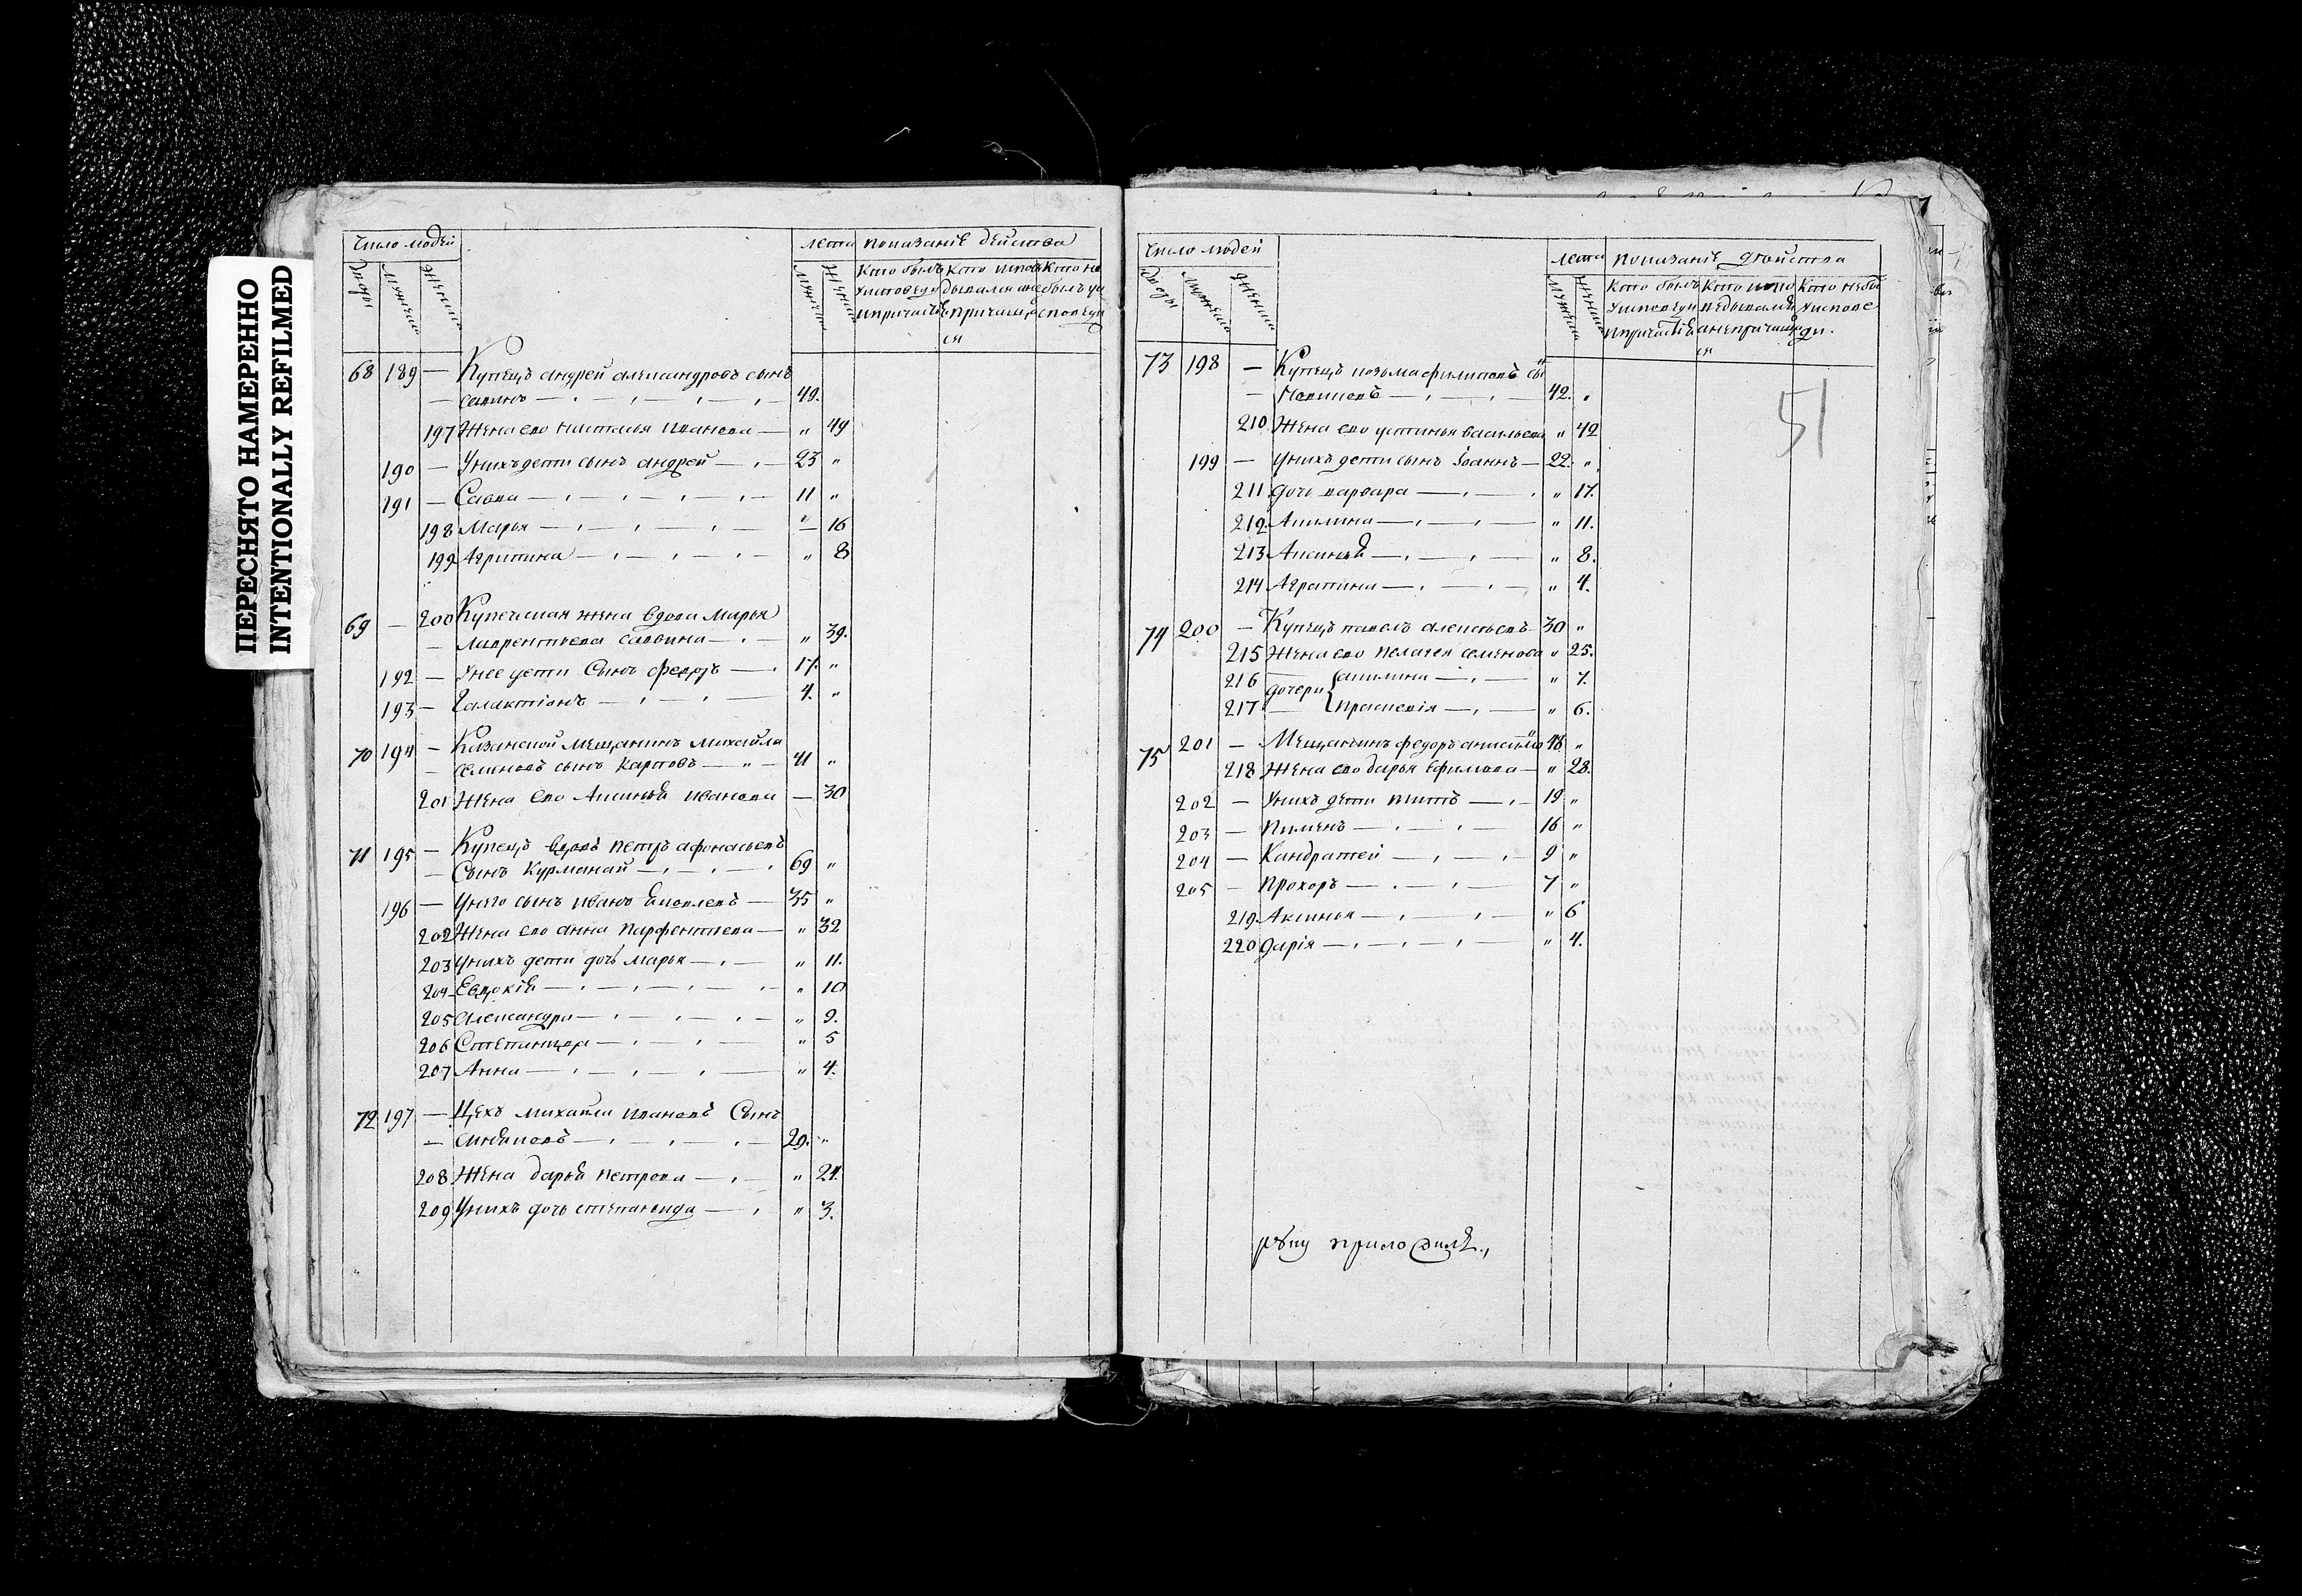 ПЕРЕСНЯТО НАМЕРЕННО
INTENTIONALLY REFILMED
число людей лета показанiе действа
Дворы мужеска женска мужеска женска
68 189 — Купецъ андрей александровъ сынъ
— савинъ — 49.
197 Жена ево настасья иванова — „ 49
190 — Унихъ дети сынъ андрей — 23 „
191 — Савва — 11 „
198 Марья — „ 16
199 Агрипина — „ 8
69 — 200 Купеческая жена вдова Марья
— лаврентьева саввина — „ 39.
192 — Унее дети Сынъ федоръ — 17. „
193 — Галактiонъ — 4. „
70 194 — Казанской мещанинъ михайла
— семеновъ сынъ Карповъ — 41 „
201 Жена ево Аксинья иванова — 30
71 195 — Купецъ вдовъ петръ афонасьевъ
— Сынъ Курманай — 69 „
196 — Унего сынъ иванъ — 35 „
202 Жена ево анна парфентьева — „ 32
203 Унихъ дети дочь марья — „ 11.
204 Евдокiя — „ 10
205 Александра — „ 9.
206 Степанида — „ 5
207 Анна — „ 4.
72 197 — Цехъ михайла ивановъ Сынъ
— 29. „
208 Жена дарья петрова — „ 24.
209 Унихъ дочь степанида — „ 3.
число людей лета показанiе действа
Дворы мужеска женска мужеска женска
51
73 198 — Купецъ козьма филиповъ сы
— 42. „
210 Жена ево устинья васильева „ 42
199 — Унихъ дети сынъ Iоаннъ — 22. „
211 дочь варвара — „ 17.
212 Акилина — „ 11.
213 Аксинья — „ 8.
214 Аграпина — „ 4.
74 200 — Купецъ павелъ алексеевъ 30 „
215 Жена ево пелагея семенова „ 25.
216 дочери акилина — „ 7.
217 праскевiя — „ 6.
75 201 — Мещанинъ федоръ 48 „
218 Жена ево дарья ефимова — „ 28.
202 — Унихъ дети титъ — 19 „
203 — Пименъ — 16 „
204 — Кандратей — 9 „
205 — Прохоръ — 7 „
219. Аксинья — „ 6
220 дарiя — „ 4.
руку приложилъ